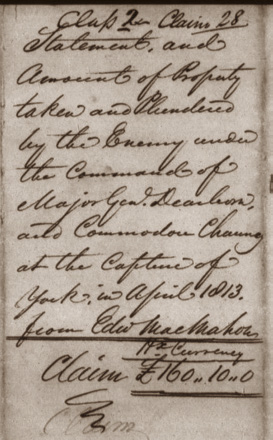 Class 2 Claims 28
Statement, and
Amount of Property
taken and Plundered
by the Enemy under
the Command of
Major Genl. Dearborn,
and Commodore Chauncy
at the Capture of
York, in April 1813.
from Edwd MacMahon
Hx Currency
Claim £160,,10,,0